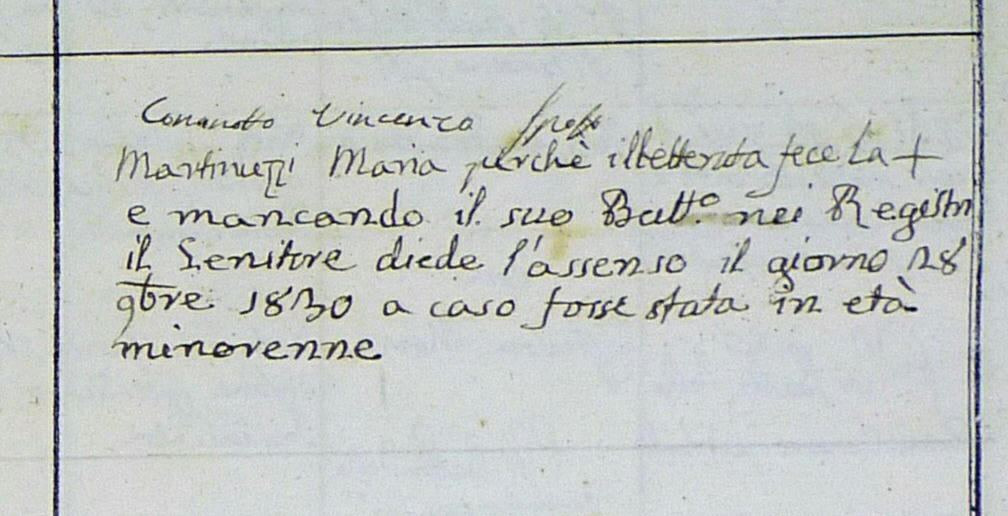 Vincenzo Sposo
Martinuzzi Maria perchè illetterata fece la +
e mancando il suo Batt.o nei Registri
il Genitore diede l'assenso il giorno 28
9bre 1830 a caso fosse stata in età
minorenne